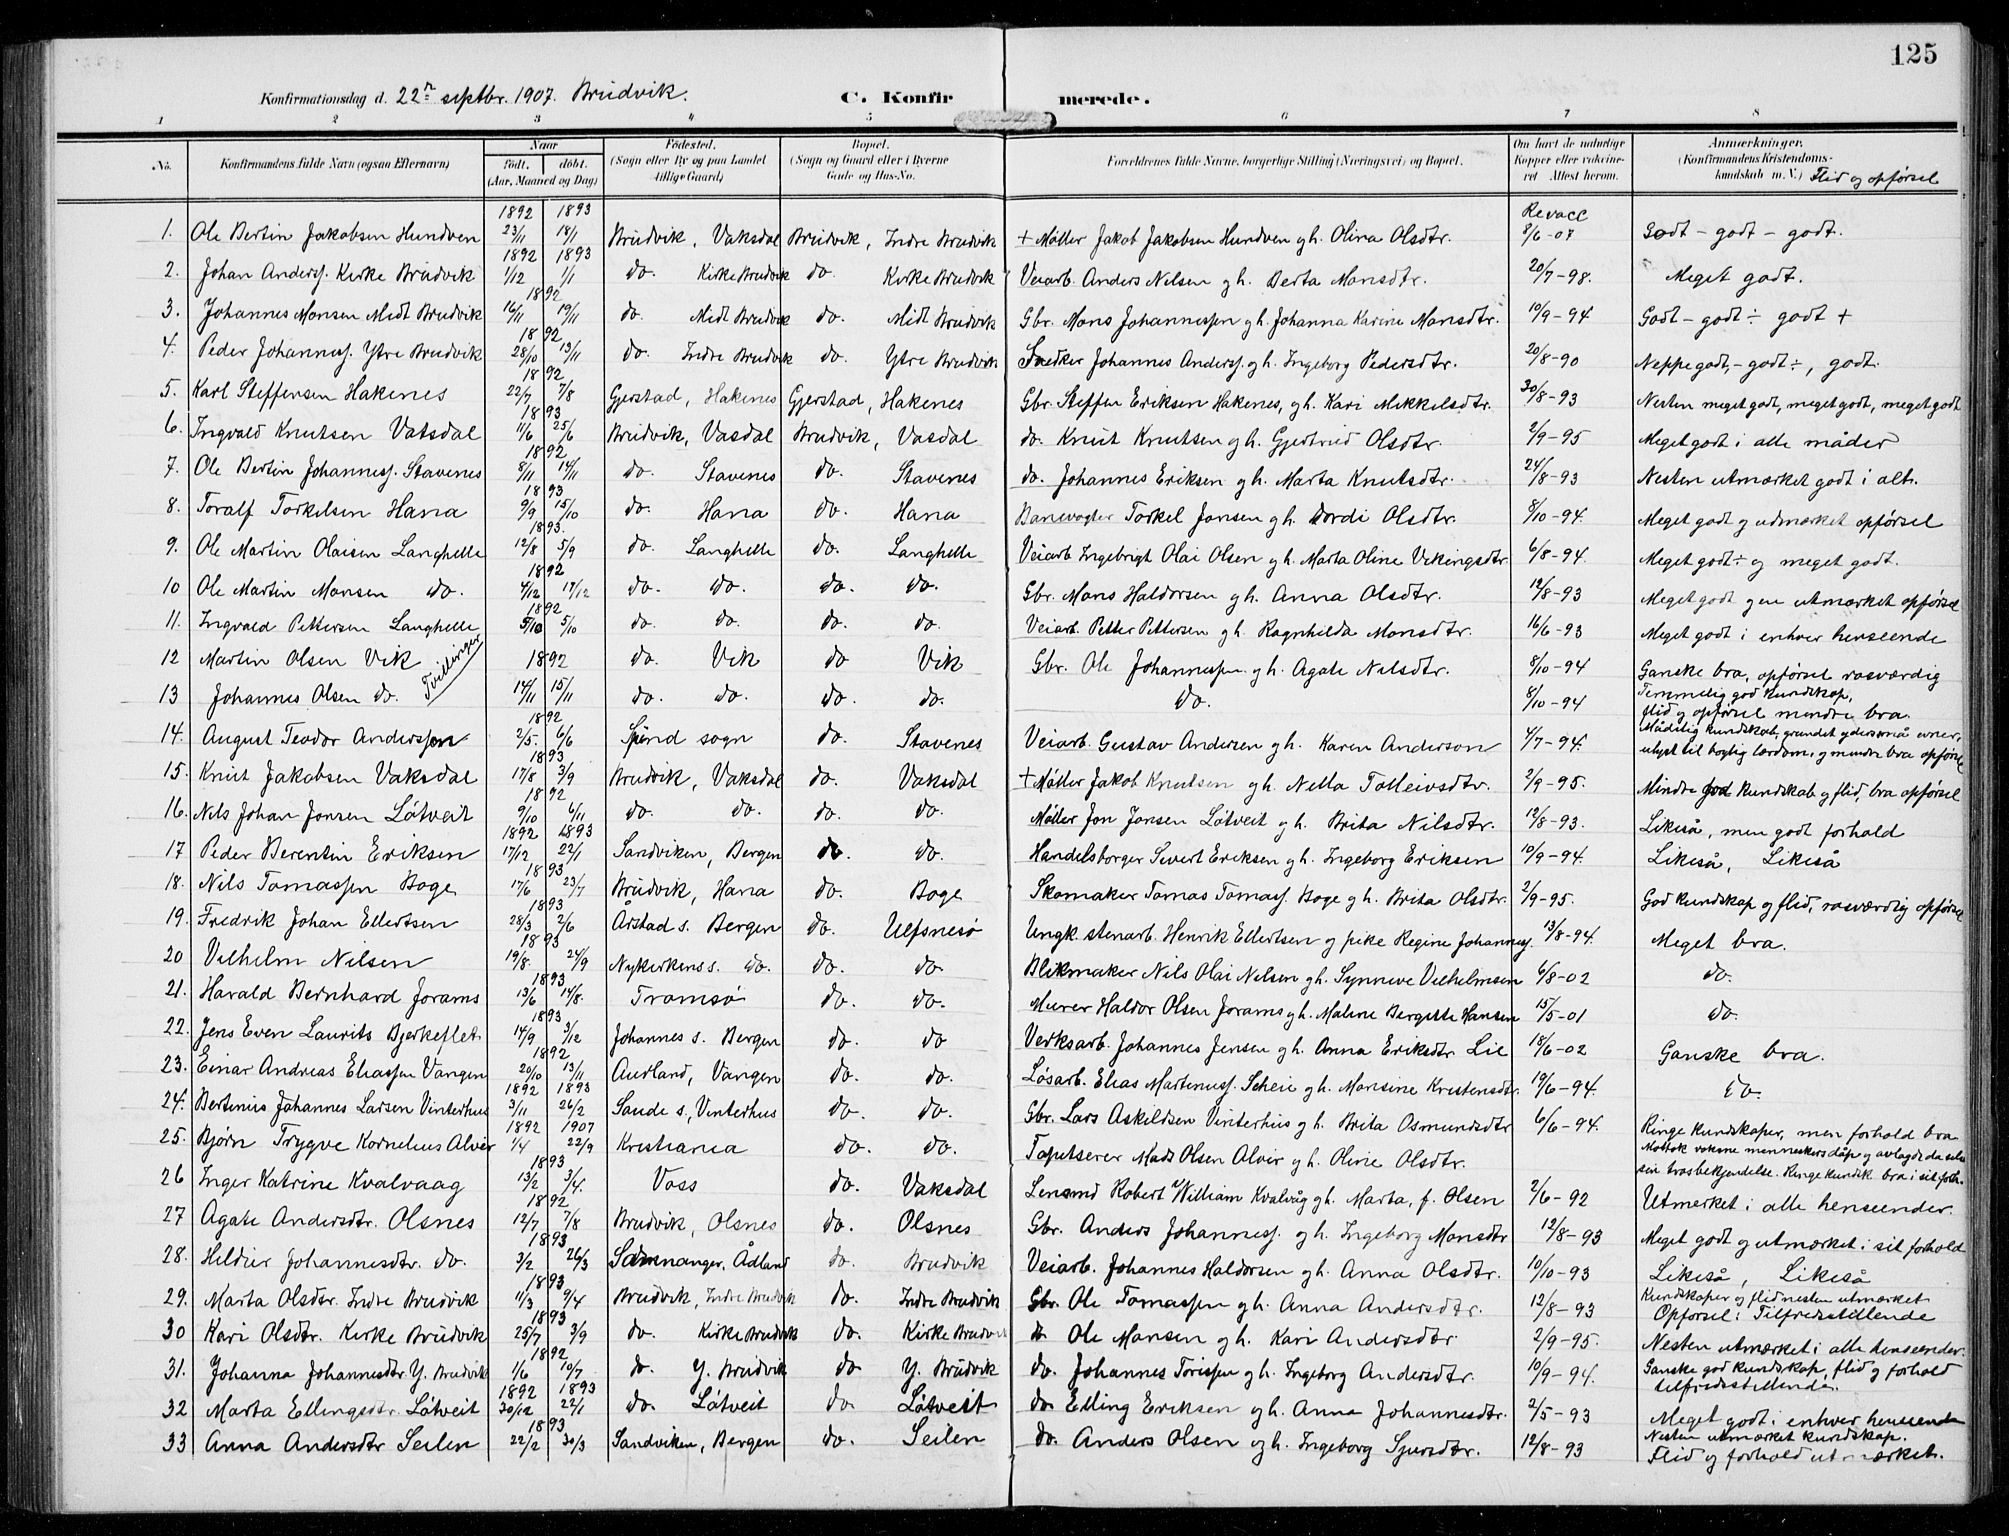 125
Konfirmationsdag d. 22n septbr. 1907. Brudvik. C. Konfirmerede.
1 2 3 4 5 6 7 8
No. Konfirmandens fulde Navn (ogsaa Efternavn) Naar født. døbt. (Aar, Maaned og Dag) Fødested. (Sogn eller By og paa Landet tillige Gaard) Bopæl. (Sogn og Gaard eller i Byerne Gade og Hus-No. Forældrenes fulde Navne, borgerlige Stilling (Næringsvei) og Bopæl. Om havt de naturlige Kopper eller vakcineret. Attest herom. Anmærkninger. (Konfirmandens Kristendomskundskab m. V.) Flid og opførsel
1892 1893 Revacc
1. Ole Bertin Jakobsen Hundven 23/11 18/1 Brudvik, Vaksdal Brudvik, Indre Brudvik + Møller Jakob Jakobsen Hundven g h. Olina Olsdtr. 8/6-07 Godt - godt - godt.
1892 1893
2. Johan Anderss. Kirke Brudvik 1/12 1/1 do. Kirke Brudvik do. Kirke Brudvik Veiarb. Anders Nilsen g h. Berta Monsdtr. 20/7-98. Meget godt.
1892
3. Johannes Monsen Midt Brudvik 16/11 19/11 do. Midt Brudvik do. Midt Brudvik Gbr. Mons Johannessen g h. Johanna Karine Monsdtr. 10/9-94 Godt - godt ÷ godt +
1892
4. Peder Johanness. Ytre Brudvik 28/10 13/11 do. Indre Brudvik do. Ytre Brudvik Snedker Johannes Anderss. g h. Ingeborg Pedersdtr. 20/8-90 Neppe godt, - godt ÷, godt.
1892
5. Karl Steffensen Hakenes 22/7 7/8 Gjerstad, Hakenes Gjerstad, Hakenes Gbr. Steffen Eriksen Hakenes, g h. Kari Mikkelsdtr. 30/8-93 Nesten meget godt, meget godt, meget godt
1893
6. Ingvald Knutsen Vatsdal 11/6 25/6 Brudvik, Vasdal Brudvik, Vasdal do. Knut Knutsen g h. Gjertrud Olsdtr. 2/9-95 Meget godt i alle måder
1892
7. Ole Bertin Johanness. Stavenes 8/11 14/11 do. Stavenes do. Stavenes do. Johannes Eriksen g h. Marta Knutsdtr. 24/8-93 Nesten utmærket godt i alt.
1893
8. Toralf Torkelsen Hana 9/9 15/10 do. Hana do. Hana Banevogter Torkel Jonsen g h. Dordi Olsdtr. 8/10-94. Meget godt g udmærket opførsel
1893.
9. Ole Martin Olaisen Langhelle 12/8 5/9 do. Langhelle do. Langhelle Veiarb Ingebrigt Olai Olsen g h. Marta Oline Vikingsdtr. 6/8-94. Meget godt ÷ og meget godt.
1892
10 Ole Martin Monsen do. 4/12 17/12 do. do. do. do. Gbr. Mons Haldorsen g h. Anna Olsdtr. 12/8-93 Meget godt g en utmærket opførsel
1892
11. Ingvald Pettersen Langhelle 5/10 5/10 do. do. do. do. Veiarb. Petter Pettersen g h. Ragnhilda Monsdtr. 16/6-93 Meget godt i enhver henseende
12 Martin Olsen Vik Tvillinger 1892 do. Vik do Vik Gbr. Ole Johannessen g h. Agate Nilsdtr. 8/10-94 Ganske bra, opførsel rosværdig
13 Johannes Olsen do. 14/11 15/11 do. do. do. do. do. 8/10-94 Temmelig god kundskap, flid g opførsel mindre bra.
1892
14. August Teodor Anderssen 2/5. 6/6 Spind sogn do. Stavenes Veiarb. Gustav Andersen g h. Karen Anderson 4/7-94. Mådelig kundskab, grundet ydersmå evner, ulyst til boglig lærdom, g mindre bra opførsel
1893
15. Knut Jakobsen Vaksdal 17/8 3/9 Brudvik, Vaksdal do. Vaksdal + Møller Jakob Knutsen g h. Nella Tolleivsdtr. 2/9-95. Mindre god kundskab g flid, bra opførsel
1892
16. Nils Johan Jonsen Løtveit 9/10 6/11 do. do. do. do. Møller Jon Jonsen Løtveit g h. Brita Nilsdtr. 12/8-93. Likeså, men godt forhold
1892 1893
17 Peder Berentin Eriksen 17/12 22/1 Sandviken, Bergen do. do. Handelsborger Sivert Eriksen g h. Ingeborg Eriksen 10/9-94. Likeså, Likeså
1893
18. Nils Tomassen Boge 17/6 23/7 Brudvik, Hana do. Boge Skomaker Tomas Tomass. Boge g h. Brita Olsdtr. 2/9-95. God kundskap g flid, rosværdig opførsel
1893
19. Fredrik Johan Ellertsen 28/3 2/6 Årstad s. Bergen do. Ulfsnesø Ungk. stenarb. Henrik Ellertsen g pike Regine Johanness. 13/8-94. Meget bra.
1893
20 Vilhelm Nilsen 19/8. 24/9 Nykirkens s. do. do. do Blikmaker Nils Olai Nilsen g h. Synneve Vilhelmsen 6/8-02 do.
1893
21. Harald Bernhard Jorams 13/6 14/8. Tromsø do. do. Murer Haldor Olsen Jorams g h. Maline Bergitte Hansen 15/5-01 do.
1893
22. Jens Even Laurits Bjerkeflet 14/9 3/12 Johannes s. Bergen do. do Verksarb. Johannes Jensen g h. Anna Eriksdtr. Lie 18/6-02 Ganske bra.
1892
23. Einar Andreas Eliassen Vangen 20/10 13/11 Aurland, Vangen do. do. Løsarb. Elias Martinuss. Scheie g h. Monsine Kristensdtr. 19/6-94. do.
1892 1893
24. Bertinius Johannes Larsen Vinterhus 3/11 26/2 Saude s., Vinterhus do. do. Gbr. Lars Askildsen Vinterhus g h. Brita Osmundsdtr 6/6-94. Ringe kundskaper, men forhold bra
1892 1907
25. Bjørn Trygve Kornelius Alver 1/4 22/9 Kristiania do. do. Tapetserer Mads Olsen Alvir g h. Oline Olsdtr. Mottok voksne menneskers dåp g avlagde da selv sin trosbekjendelse. Ringe kundsk. bra i sit forh.
1893
26 Inger Katrine Kvalvaag 13/2 3/4. Voss do. Vaksdal Lensmd Robert William Kvalvåg g h. Marta, f. Olsen 2/6-92 Utmerket i alle henseender.
1892
27 Agate Andersdtr. Olsnes 12/7 7/8 Brudvik, Olsnes do. Olsnes Gbr. Anders Johanness. g h. Ingeborg Monsdtr 12/8-93 Meget godt g utmærket i sit forhold
1893
28. Hildur Johannesdtr. do. 3/2 26/3 Samnanger, Ådland do. Brudvik Veiarb. Johannes Haldorsen g h. Anna Olsdtr. 10/10-93 Likeså, Likeså
1893
29. Marta Olsdtr. Indre Brudvik 11/3 9/4 Brudvik, Indre Brudvik do. Indre Brudvik Gbr. Ole Tomassen g h. Anna Andersdtr. 12/8-93 Kundskaper og flid nesten utmærket Opførsel: Tilfredsstillende
1893
30 Kari Olsdtr. Kirke Brudvik 25/7 3/9 do. Kirke Brudvik do. Kirke Brudvik do Ole Monsen g h. Kari Andersdtr 2/9-95. Nesten utmærket i alle henseender.
1892
31. Johanna Johannesdtr. Y. Brudvik 1/6 10/7 do. Y. Brudvik do Y. Brudvik do. Johannes Torissen g h. Ingeborg Andersdtr. 10/9-94. Ganske god kundskap, flid g forhold tilfredsstillende.
1892 1893
32 Marta Ellingsdtr. Løtveit 30/12 22/1 do Løtveit do Løtveit do Elling Eriksen g h. Anna Johannesdtr. 2/5-93 Meget godt i enhver henseende
1893
33 Anna Andersdtr Seilen 22/2 30/3 Sandviken, Bergen do. Seilen do. Anders Olsen g h. Ingeborg Sjursdtr. 12/8-93 Nesten utmærket kundskap. Flid g forhold utmærket.